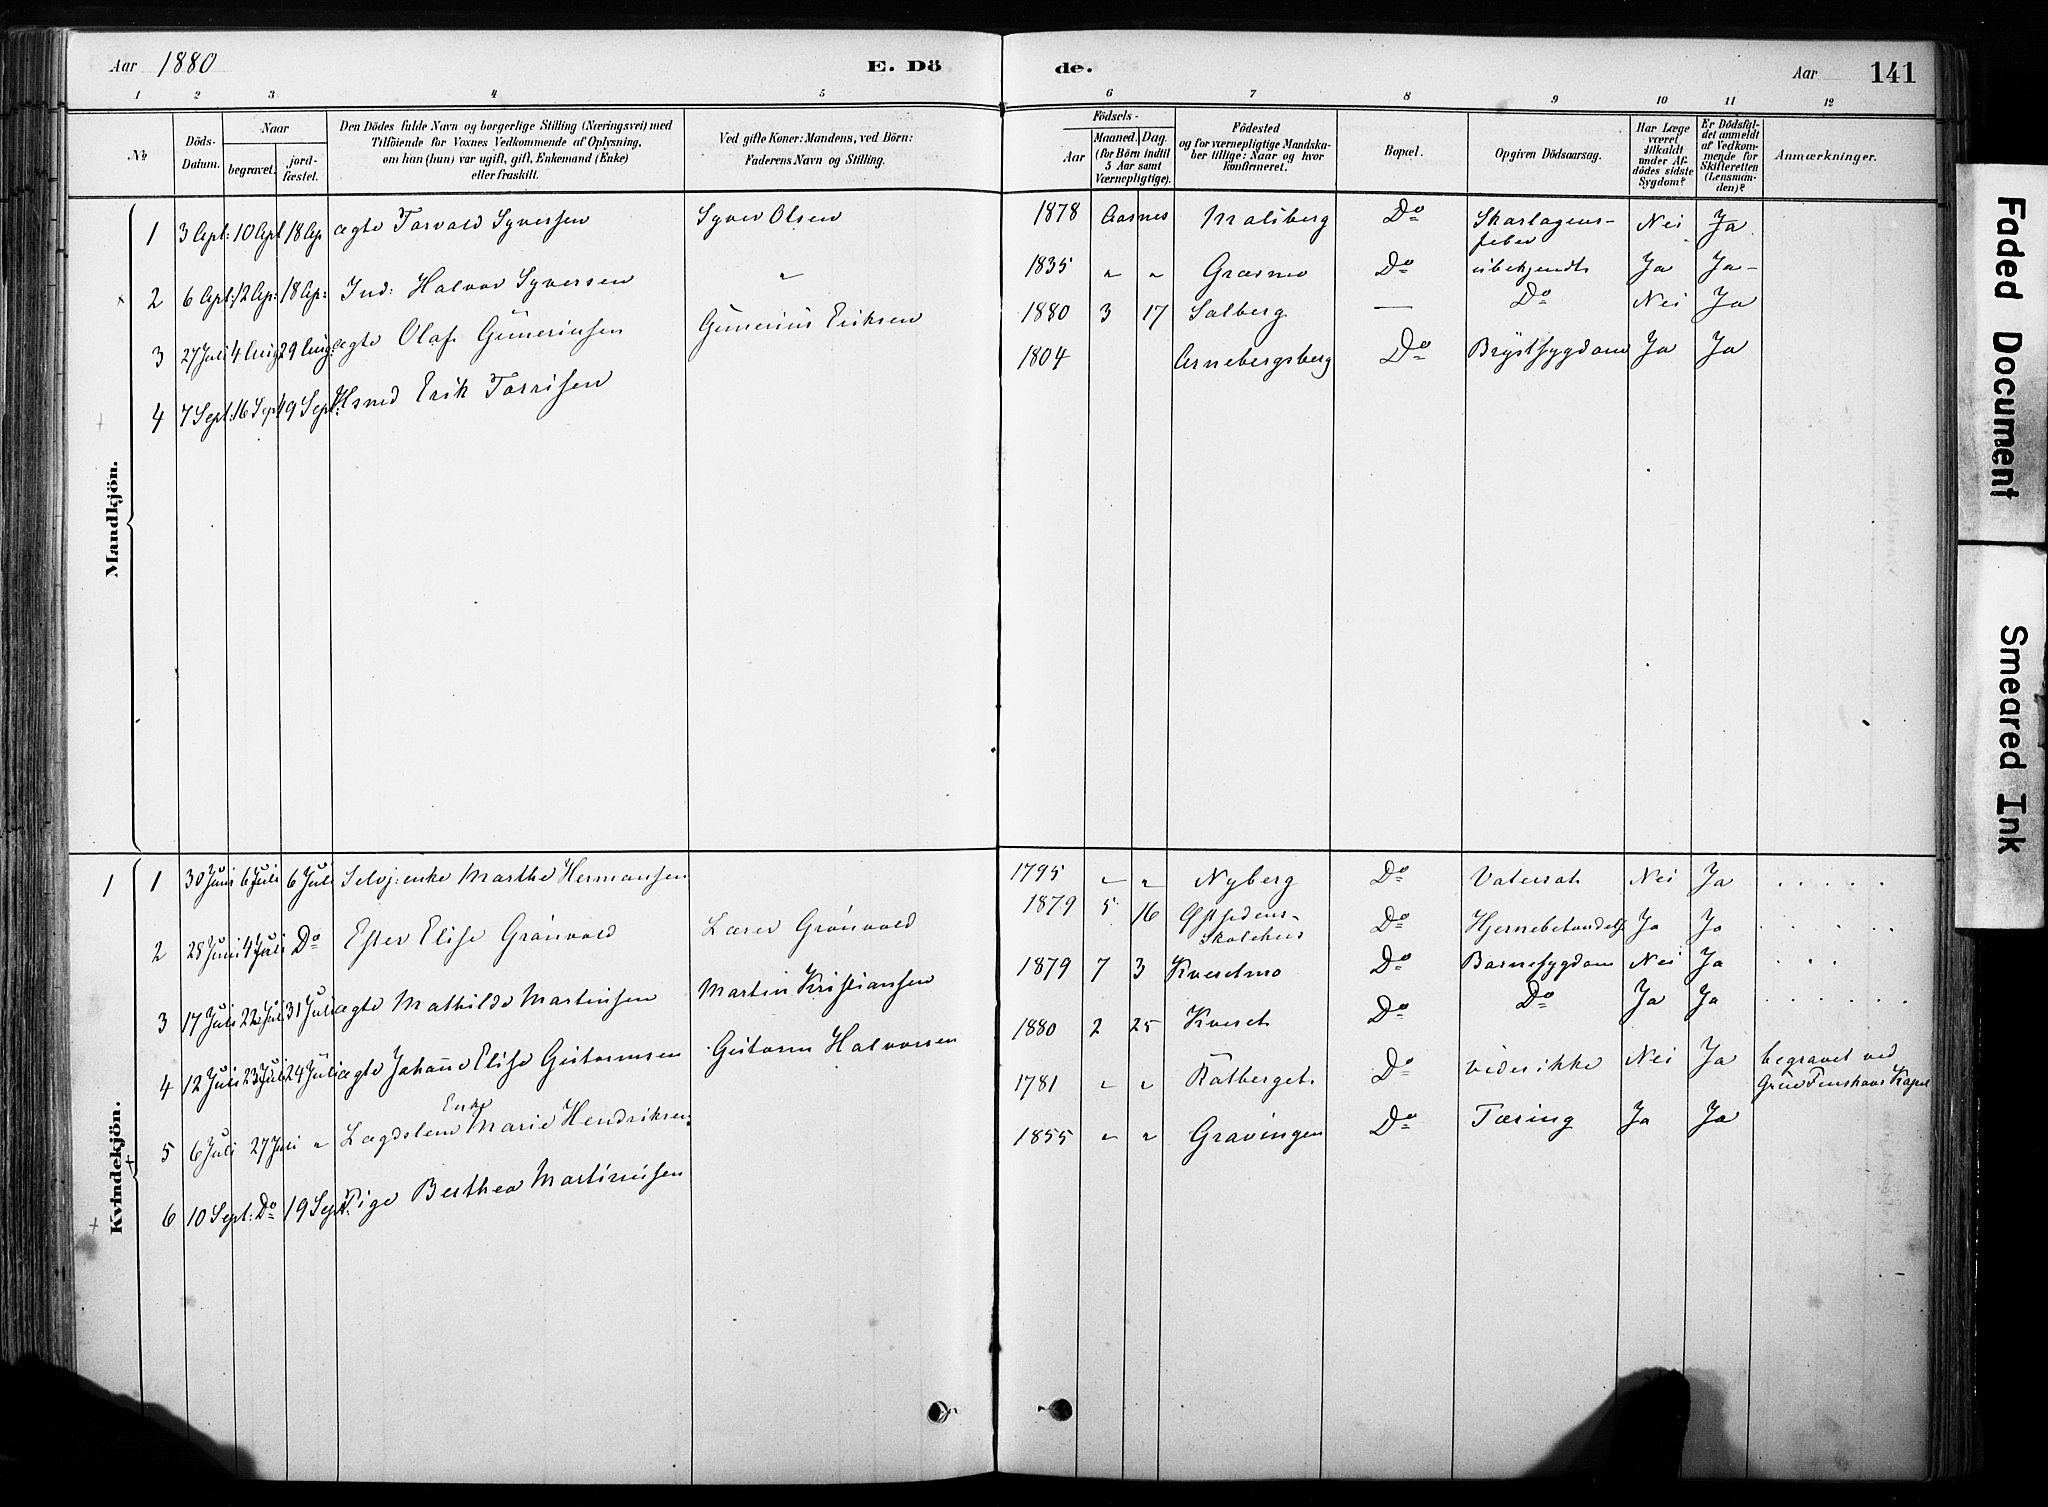 Aar 1880
E. Dö
de.
Aar
141
1 2 3 4 5 6 7 8 9 10 11 12
No
Döds-Datum.
Naar
begravet.
jord-fæstet.
Den Dödes fulde Navn og borgerlige Stilling (Næringsvei) med
Tilföiende for Voxnes Vedkommende af Oplysning,
om han (hun) var ugift, gift, Enkemand (Enke)
eller fraskilt.
Ved gifte Koner: Mandens, ved Börn:
Faderens Navn og Stilling.
Födsels-
Aar
Maaned. Dag.
(for Börn indtil
5 Aar samt
Værnepligtige).
Födested
og for værnepligtige Mandska-
ber tillige: Naar og hvor
konfirmeret.
Bopæl.
Opgiven Dödsaarsag.
Har Læge
været
tilkaldt
under Af-
dödes sidste
Sygdom?
Er Dödsfal-
det anmeldt
af Vedkom-
mende for
Skifteretten
(Lensman-
den)?
Anmærkninger.
Mandkjön.
1 3 Apl: 10 Apl 18 Ap ægte Torvald Syversen Syver Olsen 1878 Aasnes Malsberg Do Skarlagens-
feber Nei Ja
2 6 Apl: 12 Ap: 18 Ap: Ind: Halvor Syversen " 1835 " " Græsmo Do ubekjendt Ja Ja
3 27 Juli 4 Aug 29 Aug: ægte Olaf Guneriusen Gunerius Eriksen 1880 3 17 Solberg — Do Nei Ja
4 7 Sept: 16 Sept 19 Sept: Hsmd Erik Torrisen 1804 Arnebergsberg Do Brystsygdom Ja Ja
Kvindekjön.
1 1 30 Juni 6 Juli 6 Juli Selvj: enke Marthe Hermansen 1795 " " Nyberg Do Vatersot Nei Ja
2 28 Juni 4 Juli Do Ester Elise Grönvold Lærer Grönvold 1879 5 16 Østsidens-
Skolehus Do Hjernebetændelse Ja Ja
3 17 Juli 22 Juli 31 Juli ægte Mathilde Martinsen Martin Kristiansen 1879 7 3 Kvesetmo Do Barnesygdom Nei Ja
4 12 Juli 23 Juli 24 Juli ægte Johanne Elise Gustavusen Gustavus Halvorsen 1880 2 25 Kveset Do Do Ja Ja
5 6 Juli 27 Juni " Lægdslem Enke Marie Hendriksen 1781 " " Rotberget Do vides ikke Nei Ja begravet ved
Grue Finskovs Kapel
6 10 Sept: Do 19 Sept: Pige Berthea Martinusen 1855 " " Gravingen Do Tæring Ja Ja
Faded Document
Smeared Ink